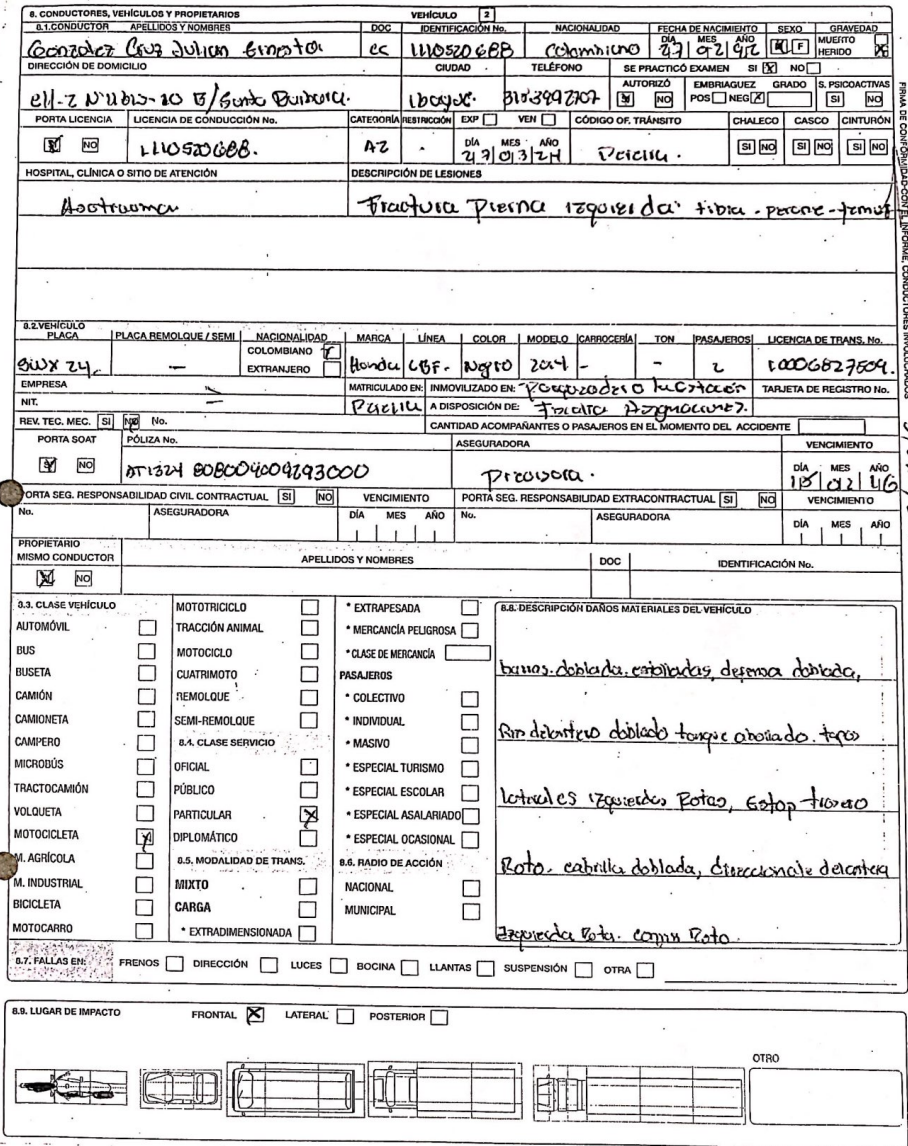 8. CONDUCTORES, VEHÍCULOS Y PROPIETARIOS VEHÍCULO 2
8.1.CONDUCTOR APELLIDOS Y NOMBRES DOC IDENTIFICACIÓN No. NACIONALIDAD FECHA DE NACIMIENTO SEXO GRAVEDAD
DÍA MES AÑO M F MUERTO HERIDO
Gonzalez Cruz Julian Ernesto cc 1110520688 Colombiano 27 02 92
DIRECCIÓN DE DOMICILIO CIUDAD TELÉFONO SE PRACTICÓ EXAMEN SI X NO
AUTORIZÓ EMBRIAGUEZ GRADO S. PSICOACTIVAS
SI NO POS NEG X SI NO
B/Santa Barbara. Ibague. 3103992707
PORTA LICENCIA LICENCIA DE CONDUCCIÓN No. CATEGORÍA RESTRICCIÓN EXP VEN CÓDIGO OF. TRÁNSITO CHALECO CASCO CINTURÓN
SI NO 1110520688. A2 - DÍA MES AÑO 27 03 24 SI NO SI NO SI NO
HOSPITAL, CLÍNICA O SITIO DE ATENCIÓN DESCRIPCIÓN DE LESIONES
Asotrauma Fractura Pierna izquierda tibia - perone - femur
FIRMA DE CONFORMIDAD CON EL INFORME, CONDUCTORES INVOLUCRADOS
8.2.VEHÍCULO
PLACA PLACA REMOLQUE / SEMI NACIONALIDAD MARCA LÍNEA COLOR MODELO CARROCERÍA TON PASAJEROS LICENCIA DE TRANS. No.
COLOMBIANO
EXTRANJERO
- Honda CBF. Negro 2014 - - 2 10006827509.
EMPRESA MATRICULADO EN: INMOVILIZADO EN: Parqueadero TARJETA DE REGISTRO No.
NIT. - A DISPOSICIÓN DE:
REV. TEC. MEC. SI NO No. CANTIDAD ACOMPAÑANTES O PASAJEROS EN EL MOMENTO DEL ACCIDENTE
PORTA SOAT PÓLIZA No. ASEGURADORA VENCIMIENTO
SI NO AT1324 808004009293000 Previsora. DÍA MES AÑO
PORTA SEG. RESPONSABILIDAD CIVIL CONTRACTUAL SI NO VENCIMIENTO PORTA SEG. RESPONSABILIDAD EXTRACONTRACTUAL SI NO VENCIMIENTO
No. ASEGURADORA DÍA MES AÑO No. ASEGURADORA DÍA MES AÑO
PROPIETARIO
MISMO CONDUCTOR APELLIDOS Y NOMBRES DOC IDENTIFICACIÓN No.
SI NO
8.3. CLASE VEHÍCULO
AUTOMÓVIL
BUS
BUSETA
CAMIÓN
CAMIONETA
CAMPERO
MICROBÚS
TRACTOCAMIÓN
VOLQUETA
MOTOCICLETA X
M. AGRÍCOLA
M. INDUSTRIAL
BICICLETA
MOTOCARRO
MOTOTRICICLO
TRACCIÓN ANIMAL
MOTOCICLO
CUATRIMOTO
REMOLQUE
SEMI-REMOLQUE
8.4. CLASE SERVICIO
OFICIAL
PÚBLICO
PARTICULAR X
DIPLOMÁTICO
8.5. MODALIDAD DE TRANS.
MIXTO
CARGA
* EXTRADIMENSIONADA
* EXTRAPESADA
* MERCANCÍA PELIGROSA
*CLASE DE MERCANCÍA
PASAJEROS
* COLECTIVO
* INDIVIDUAL
* MASIVO
* ESPECIAL TURISMO
* ESPECIAL ESCOLAR
* ESPECIAL ASALARIADO
* ESPECIAL OCASIONAL
8.6. RADIO DE ACCIÓN
NACIONAL
MUNICIPAL
8.8. DESCRIPCIÓN DAÑOS MATERIALES DEL VEHÍCULO
barras. doblada. defensa doblada,
Rin delantero doblado tanque abollado. tapas
laterales izquierdas Rotas, Estop trasero
Roto. cabrilla doblada, direccionale delantera
Izquierda Rota. Roto.
8.7. FALLAS EN: FRENOS DIRECCIÓN LUCES BOCINA LLANTAS SUSPENSIÓN OTRA
8.9. LUGAR DE IMPACTO FRONTAL X LATERAL POSTERIOR
OTRO